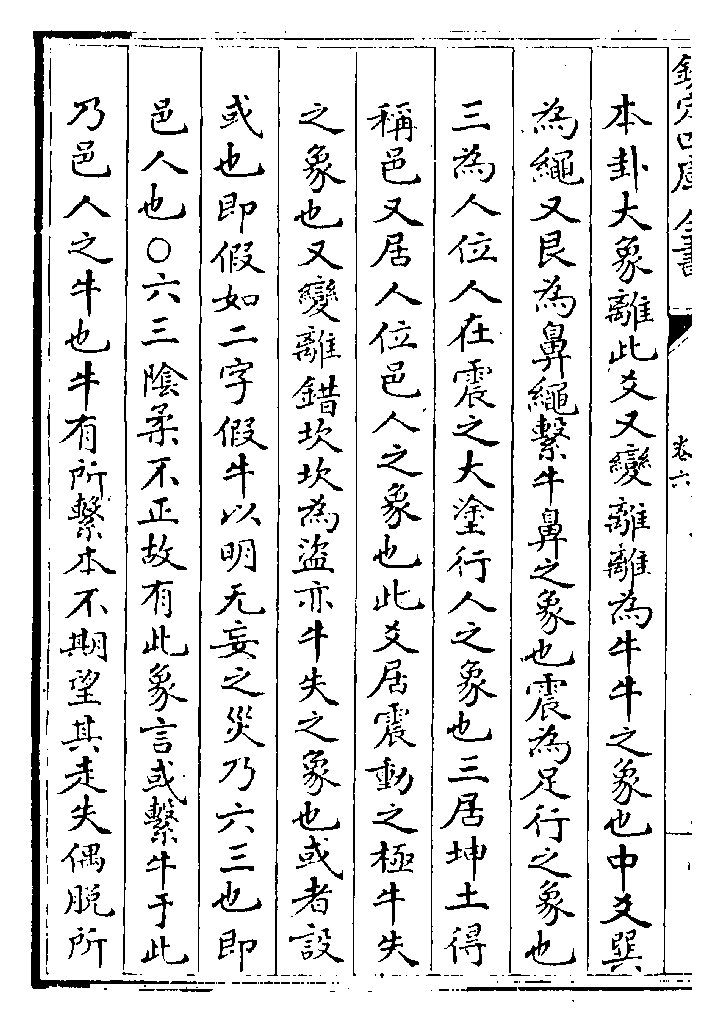 欽定四庫全書
卷六
本卦大象離此爻又變離離為牛牛之象也中爻巽
為繩又艮為鼻繩繫牛鼻之象也震為足行之象也
三為人位人在震之大塗行人之象也三居坤土得
稱邑又居人位邑人之象也此爻居震動之極牛失
之象也又變離錯坎坎為盜亦牛失之象也或者設
或也即假如二字假牛以明无妄之災乃六三也即
邑人也○六三陰柔不正故有此象言或繫牛于此
乃邑人之牛也牛有所繫本不期望其走失偶脫所